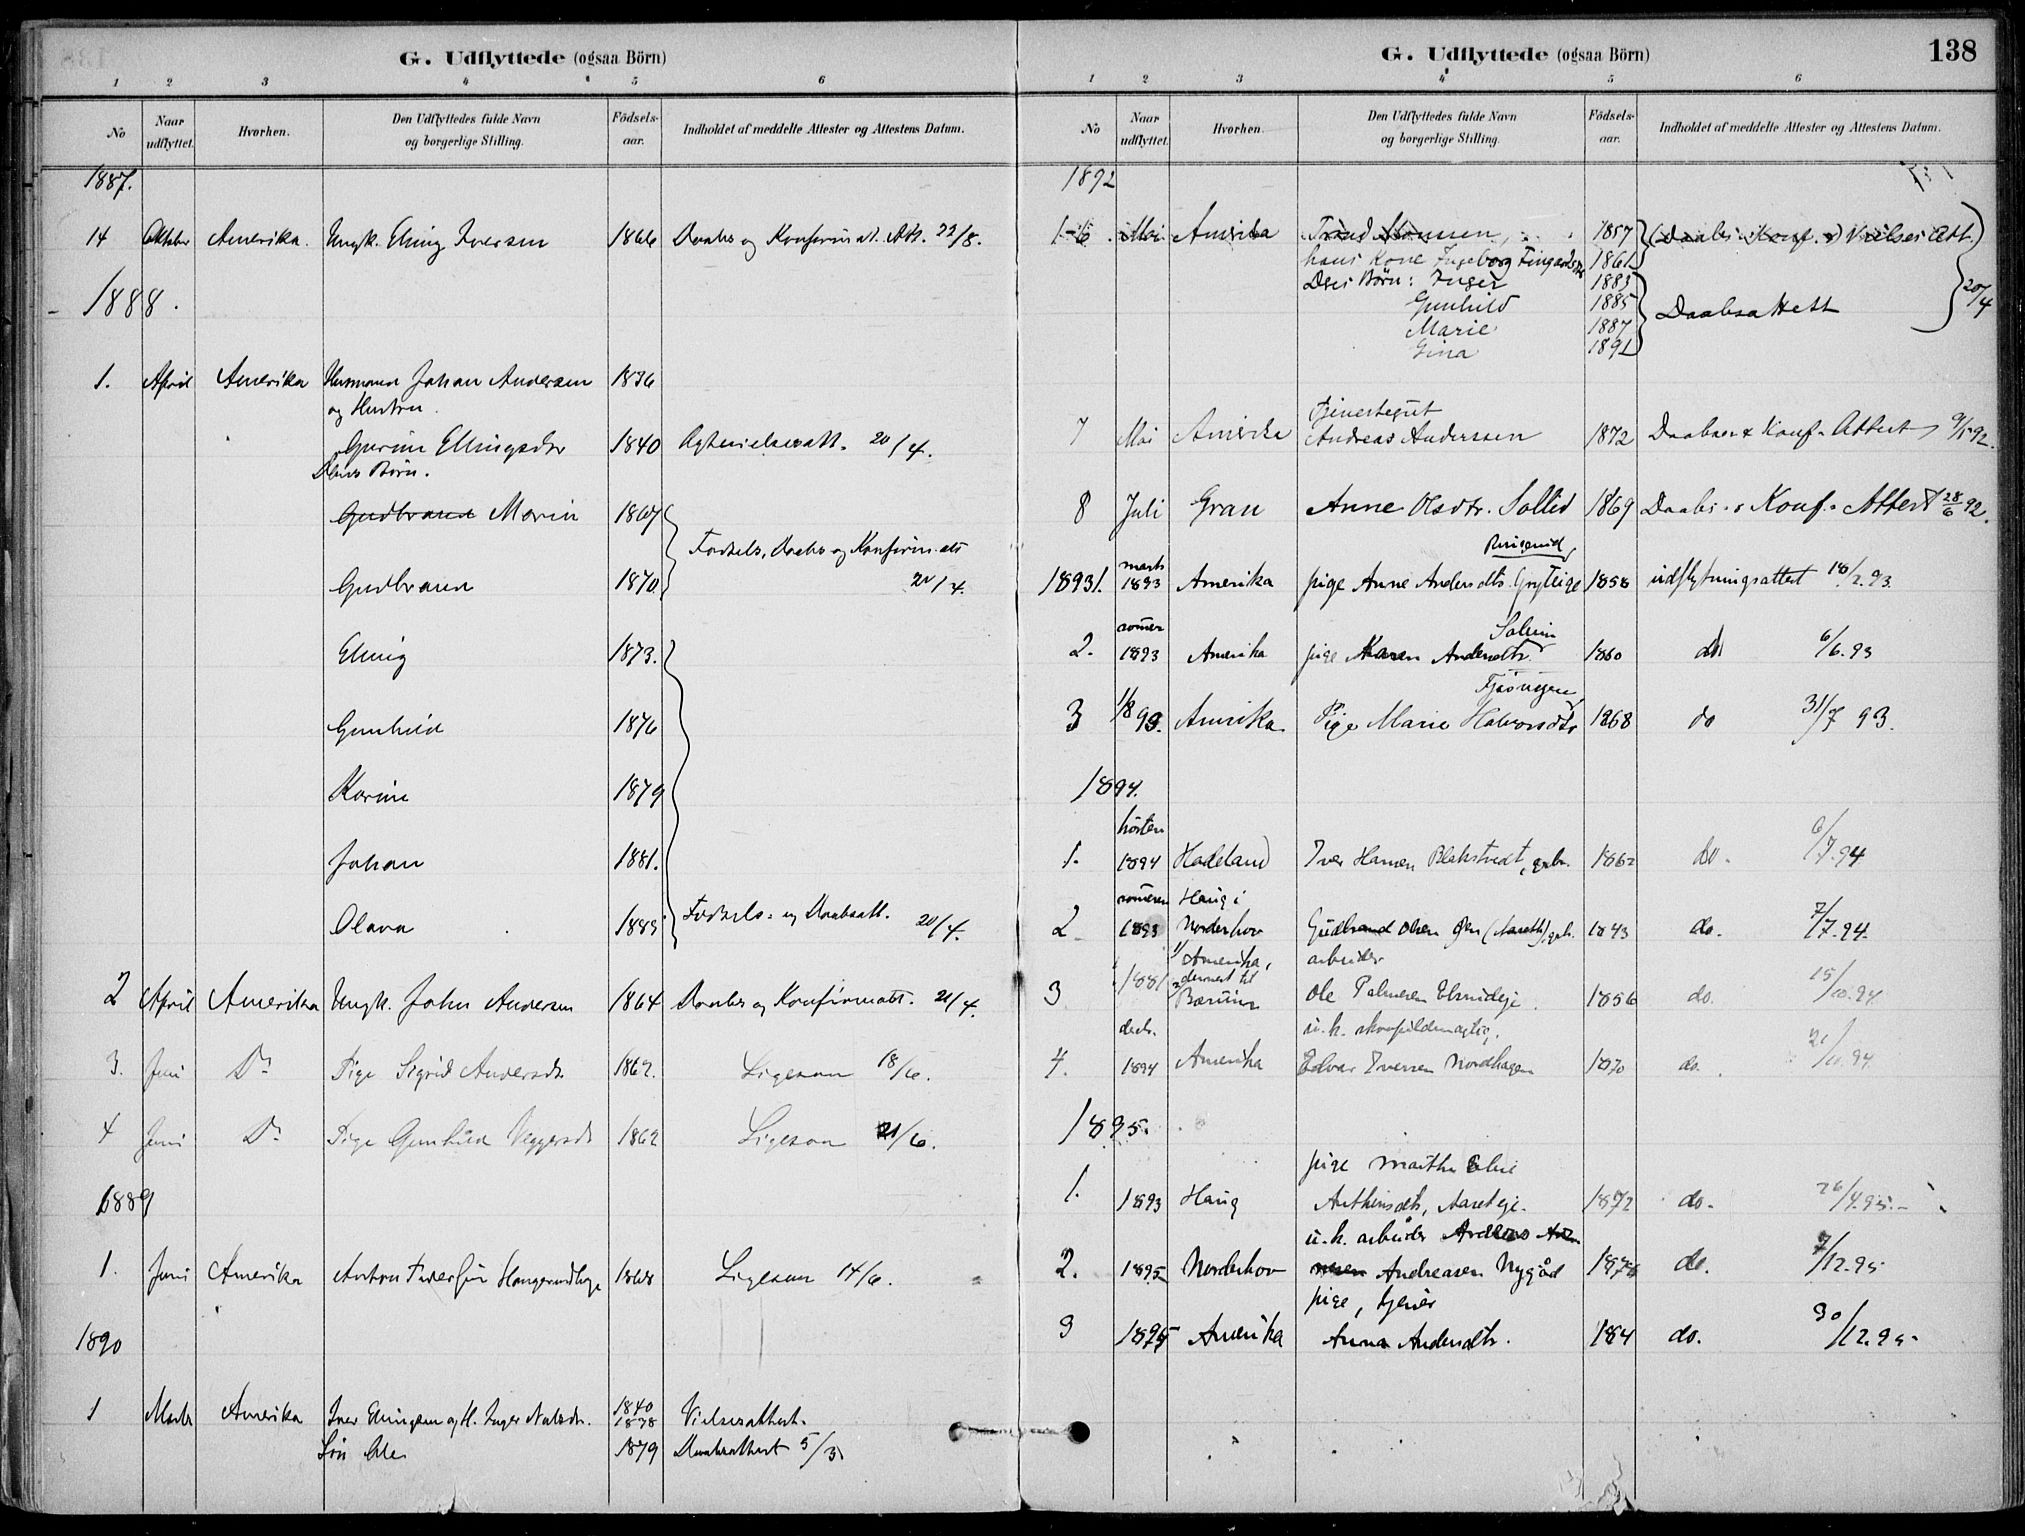 G. Udflyttede (ogsaa Börn)
1 2 3 4 5 6
No
Naar udflyttet.
Hvorhen.
Den Udflyttedes fulde Navn og borgerlige Stilling.
Födsels-aar.
Indholdet af meddelte Attester og Attestens Datum.
1887.
14 Oktober Amerika. Ungk. Elling Iversen 1866 Daabs og Konfirmat. Att. 22/8.
1888.
1. April Amerika Husmand Johan Andersen 1836
og Hustru
Gurine Ellingsdtr 1840 Ægtevielsesatt. 20/4.
Deres Børn.
Gudbrand Marin 1867
Fødsels, Daabs og Konfirm. att
Gudbrand 1870 20/4.
Elling 1873.
Gunhild 1876
Karine 1879
Johan 1881.
Olava 1885 Fødsels- og Daabsatt. 20/4.
2 April Amerika Ungk. John Andersen 1864 Daabs og Konfirmatt. 21/4.
3. Juni Do Pige Sigrid Andersdtr 1862. Ligesaa 18/6.
4 Juni Do Pige Gunhild 1862 Ligesaa 21/6.
1889
1. Juni Amerika Anton 1868 Ligesaa 14/6.
1890
1 Marts Amerika Iver Ellingsen og H. Inger 1840
1838 Vielsesattest.
Søn Ole 1879 Daabsattest 5/3
G. Udflyttede (ogsaa Börn) 138
1 2 3 4 5 6
No
Naar udflyttet.
Hvorhen.
Den Udflyttedes fulde Navn og borgerlige Stilling.
Födsels-aar.
Indholdet af meddelte Attester og Attestens Datum.
1892
1-6. Mai Amerika Trond Monssen, 1857 (Daabs- Konf. & Vielses Att.)
hans Kone Ingeborg 1861
Deres Børn: Inger 1883
Gunhild 1885 Daabsattest 20/4
Marie 1887
Gina 1891
Tjenestegut
7 Mai Amerika Andreas Anderssen 1872 Daabs & Konf. Attest 9/5 92.
8 Juli Gran Anne Olsdtr. Sollid 1869 Daabs- & Konf. Attest 28/6 92.
1893 1. marts 1893 Amerika pige Anne Andersdtr. 1858 udflytningsattest 18/2.93.
2. 1893 Amerika pige Karen Andersdtr. 1860 do 6/6.93
3 1/8 93. Amerika Pige Marie Halvorsdtr 1868 do 31/7 93.
1894.
høsten
1. 1894 Hadeland Iver Hansen 1862 do. 6/7.94
Haug i
2 1893 Norderhov Gudbrand Olsen 1843 do. 7/7.94.
Amerika, arbeider
dernest til
3 1881 Bærum Ole Palmesen 1856 do. 15/10.94.
u.k.
4. 1894 Amerika Edvar Iversen Nordhagen 1870 do. 94.
1895.
pige Marthe
1. 1893 Haug 1872 do. 26/4.95.
u.k. arbeider
2. 1895 Norderhov Andreasen Nygård do. 7/12.95
pige,
3 1895 Amerika Anna Andersdtr. do. 30/12.95